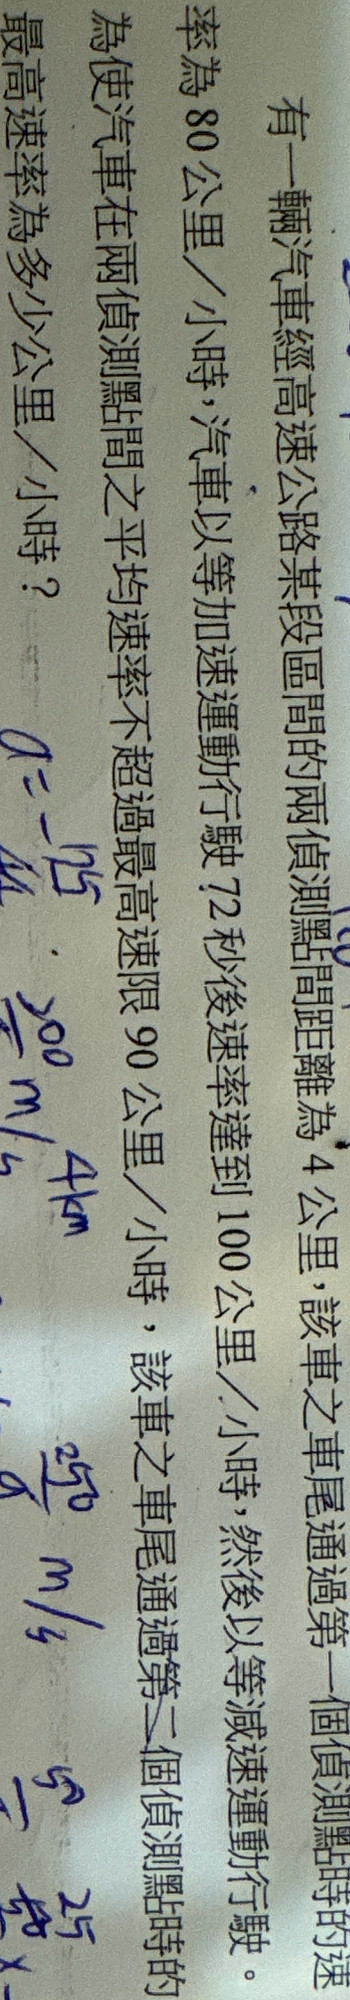 有一輛汽車經高速公路某段區間的兩偵測點間距離為 4 公里，該車之車尾通過第一個偵測點時的速
率為 80 公里／小時，汽車以等加速運動行駛 72 秒後速率達到 100 公里／小時，然後以等減速運動行駛。
為使汽車在兩偵測點間之平均速率不超過最高速限 90 公里／小時，該車之車尾通過第二個偵測點時的
最高速率為多少公里／小時？
4km
250 m/s
25